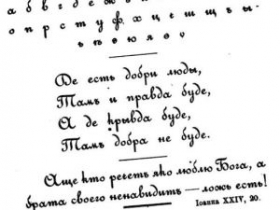 а б в г д е ж
о п р с т у ф х ц ч ш щ ъ ы
ѣ ю я
Де есть добри люды,
Тамъ и правда буде,
А де крывда буде,
Тамъ добра не буде.
Аще кто речетъ яко люблю Бога, а
брата своего ненавидить — ложь есть!
Іоанна XXIV, 20.